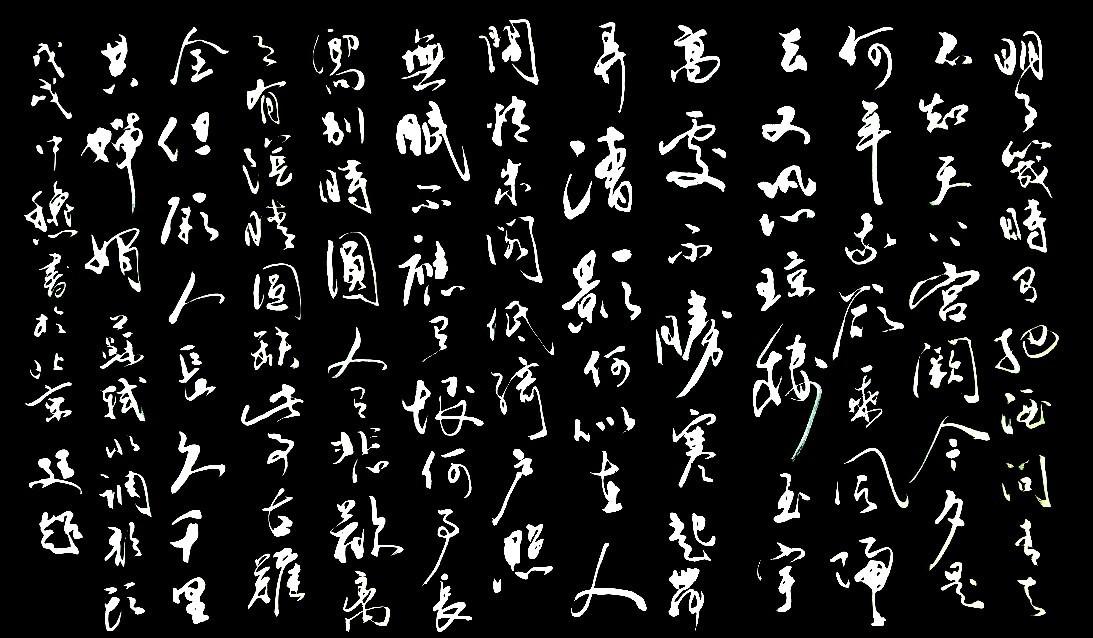 明月幾時有把酒問青天
不知天上宮闕今夕是
何年我欲乘風歸
去又恐琼樓玉宇
高處不勝寒起舞
弄清影何似在人
間轉朱閣低綺戶照
無眠不應有恨何事長
嚮別時圓人有悲歡離
月有陰晴圓缺此事古難
全但願人長久千里
共嬋娟 蘇軾水調歌頭
戊戌中穐書於北京